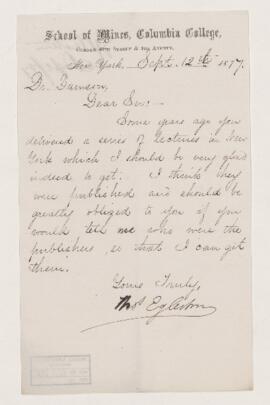 School of Mines, Columbia College,
CORNER 49TH STREET & 4TH AVENUE,
New York, Sept. 12th 1877.
Dr.
Dear Sir:-
Some years ago you
delivered a series of lectures in New
York which I should be very glad
indeed to get. I think they
were published and should be
greatly obliged to you if you
would tell me who were the
publishers, so that I can get
them.
Yours Truly,
Thos Egleston